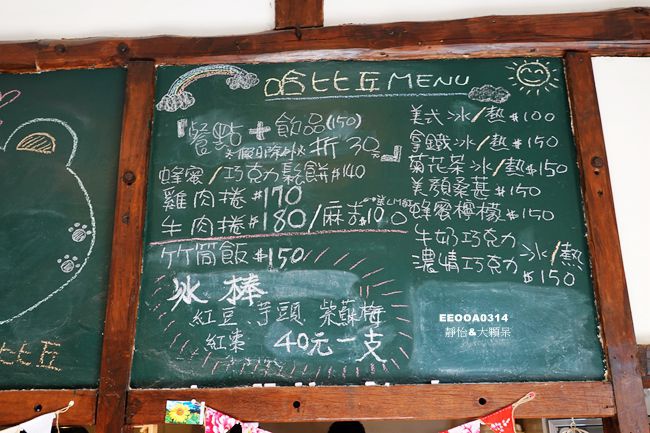 哈比丘 MENU
『餐點+飲品(150)
*假日除外* 折30元』
蜂蜜/巧克力鬆餅$140
雞肉捲$170
牛肉捲$180/麻吉100
竹筒飯$150
冰棒
紅豆 芋頭 紫蘇梅
紅棗 40元一支
美式冰/熱$100
拿鐵冰/熱$150
菊花茶冰/熱$150
美顏桑葚$150
蜂蜜檸檬$150
牛奶巧克力
濃情巧克力 冰/熱
$150
比丘
EEOOA0314
靜怡&大顆呆